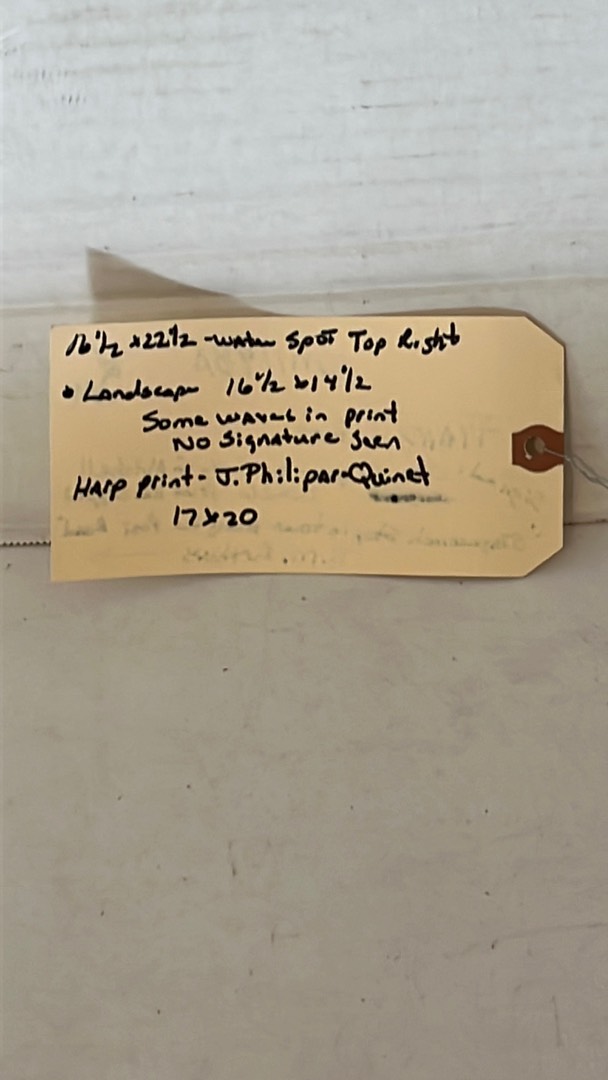 16 1/2 x 22 1/2 - water spot Top Right
• Landscape 16 1/2 x 14 1/2
Some waves in print
No Signature Seen
Harp print - J. Philipar-Quinet
17x20